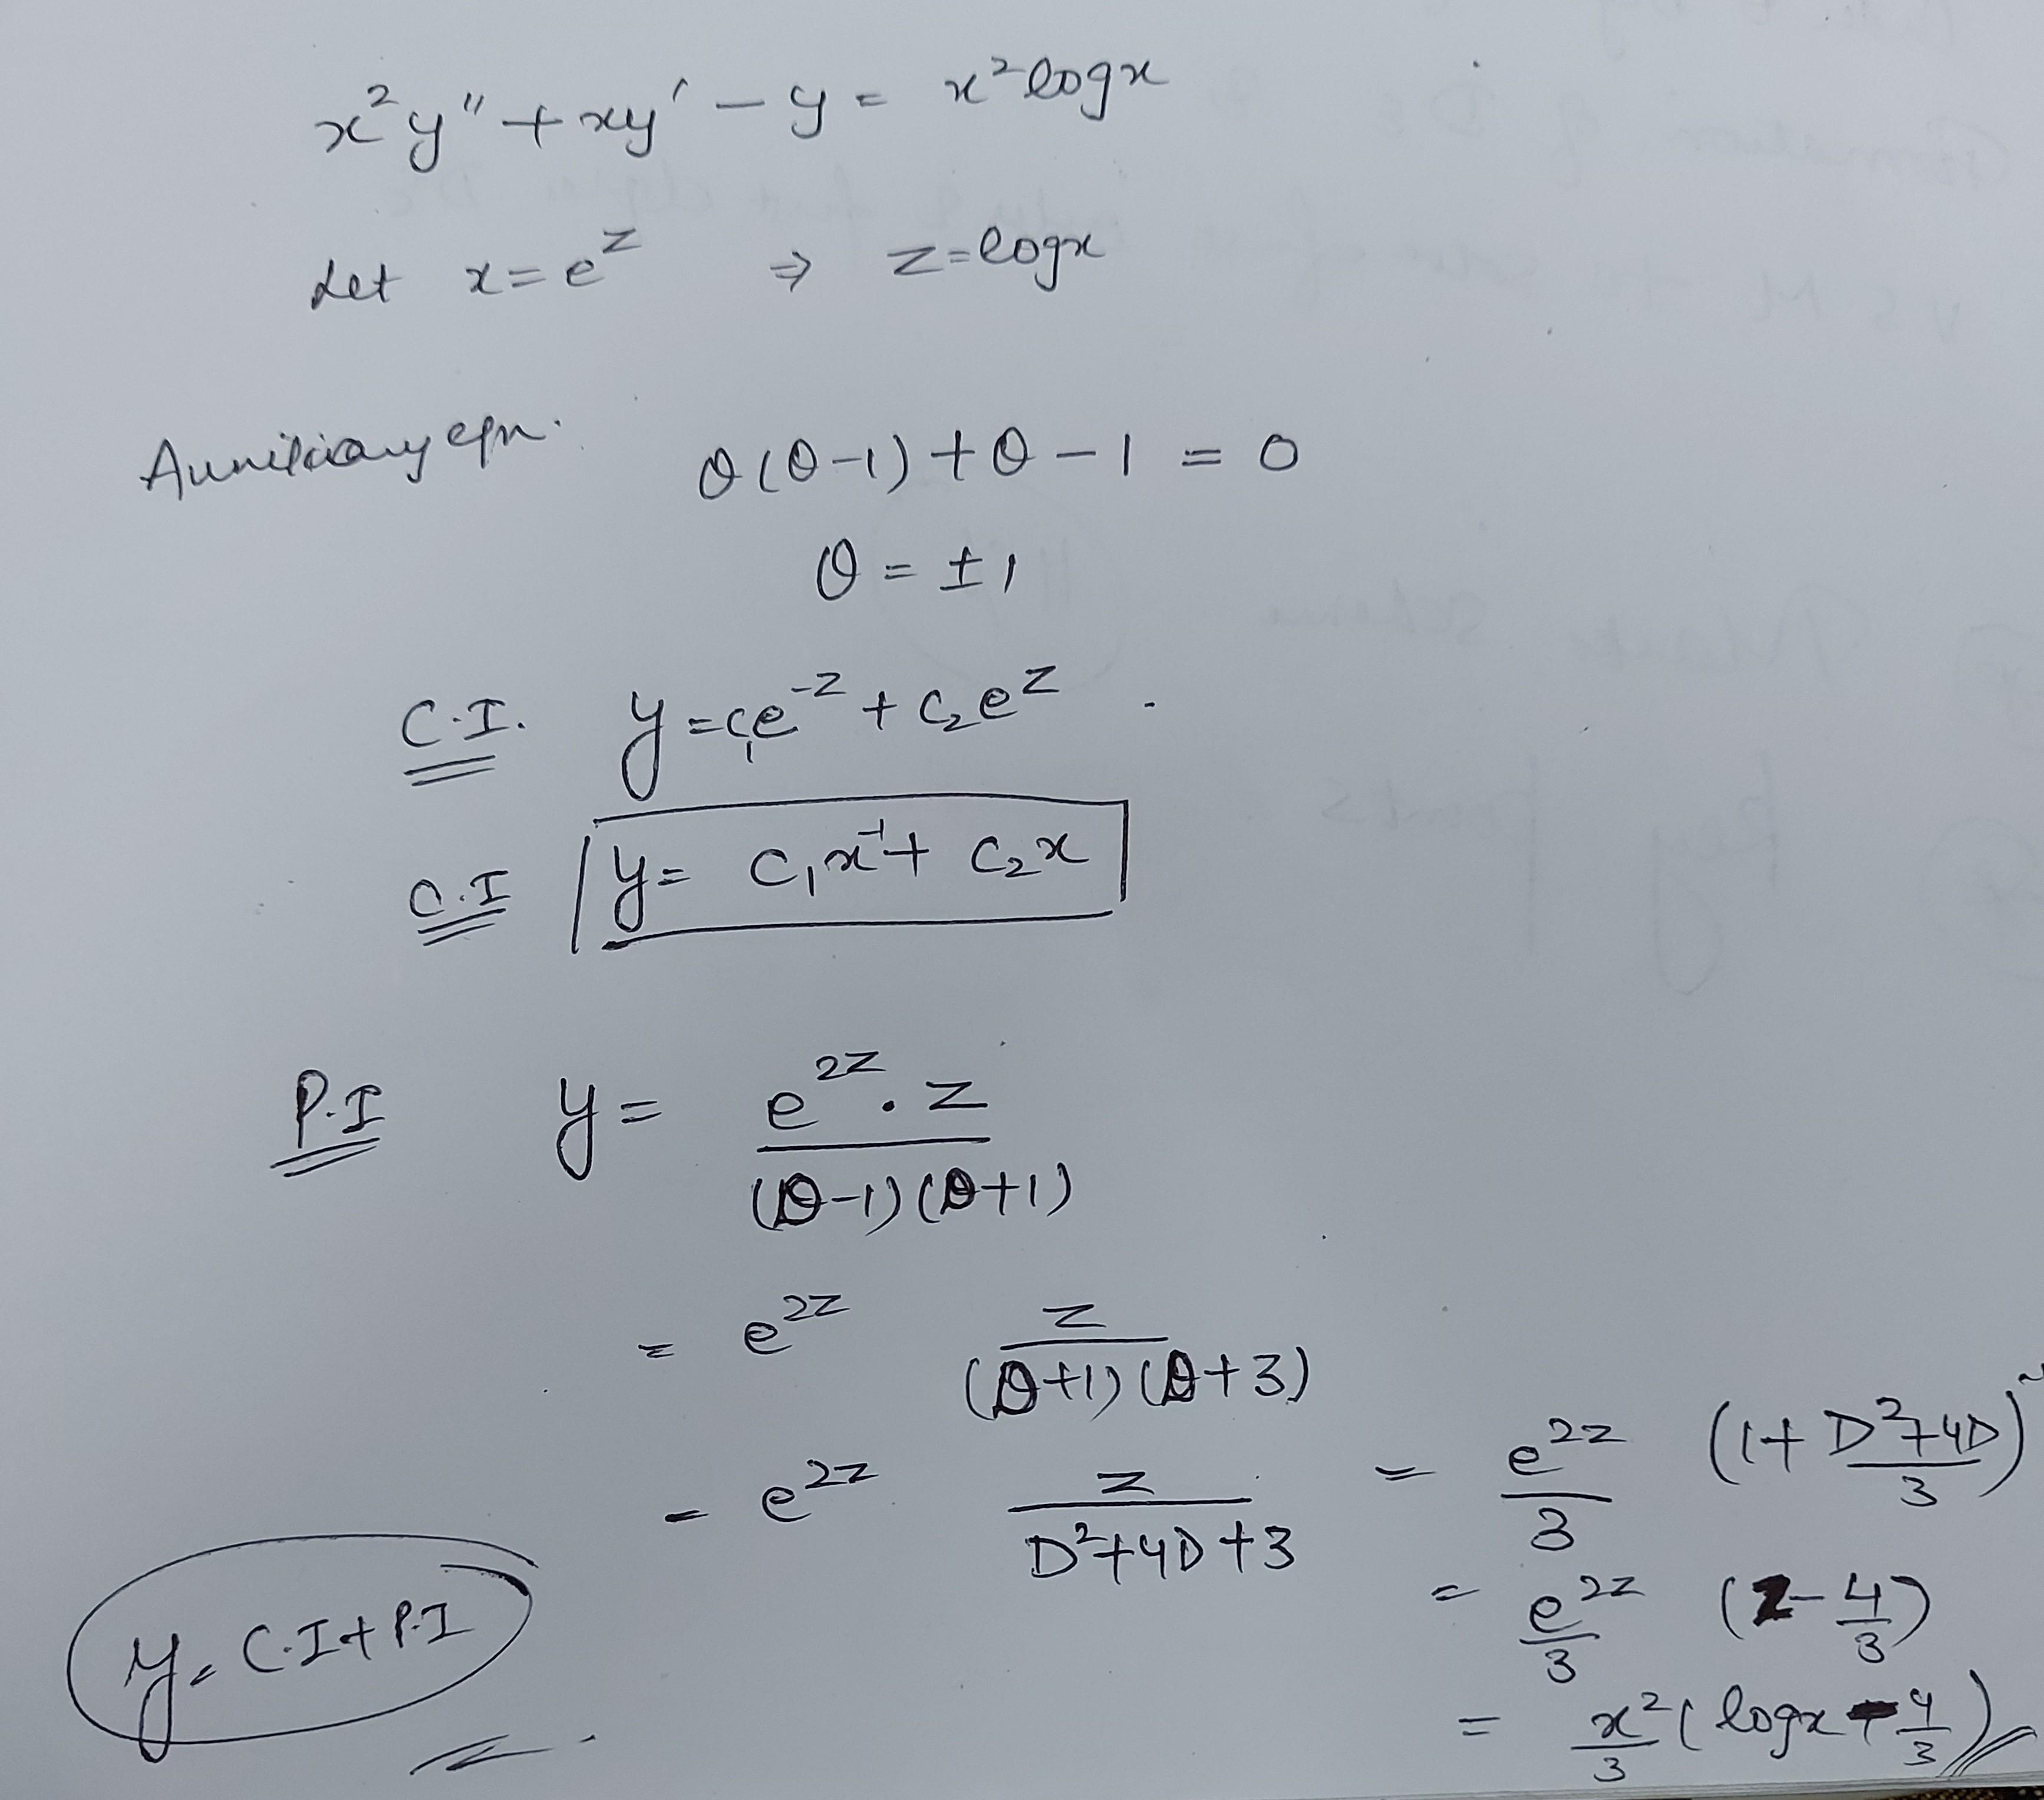 x²y" + xy' - y = x² logx
Let x = e^z ⇒ z = logx
Auxiliary eqn. θ(θ-1) + θ - 1 = 0
θ = ±1
C.I. y = c₁e^-z + c₂e^z
C.I y = c₁x^-1 + c₂x
P.I y = e^2z . z / (θ-1)(θ+1)
= e^2z z / (θ+1)(θ+3)
= e^2z z / D²+4D+3 = e^2z/3 (1 + D²+4D/3)
= e^2z/3 (z - 4/3)
= x²/3 (logx - 4/3)
y = C.I + P.I